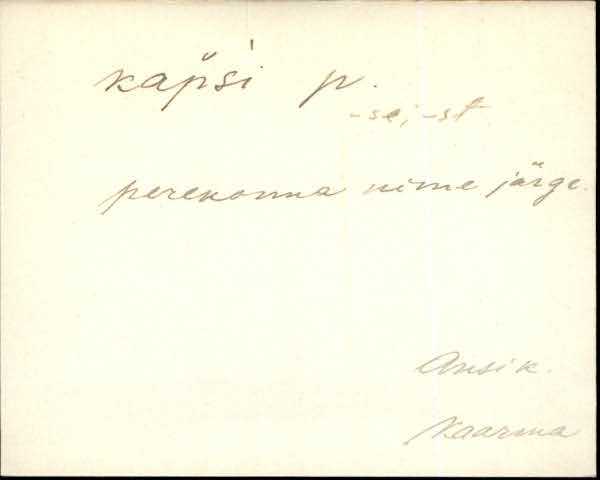 käpsi p.
-se, -st
perekonna nime järge.
Ansik.
Kaarma